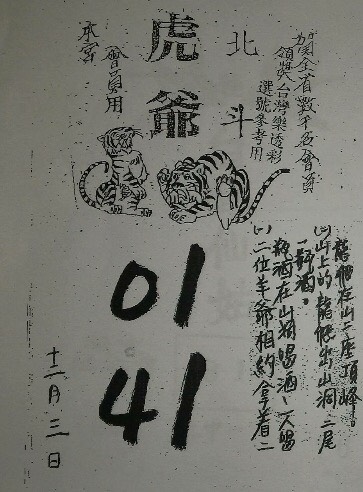 全省數千名會員
領獎台灣樂透彩
選號參考用
北斗
虎爺
會員用
本宮
01
41
㈠二位羊爺相約拿着二
瓶酒在山洞喝酒、一人喝
一瓶酒。
㈡山上的龍出山洞、二尾
龍在山二座頂峰。
十二月三日